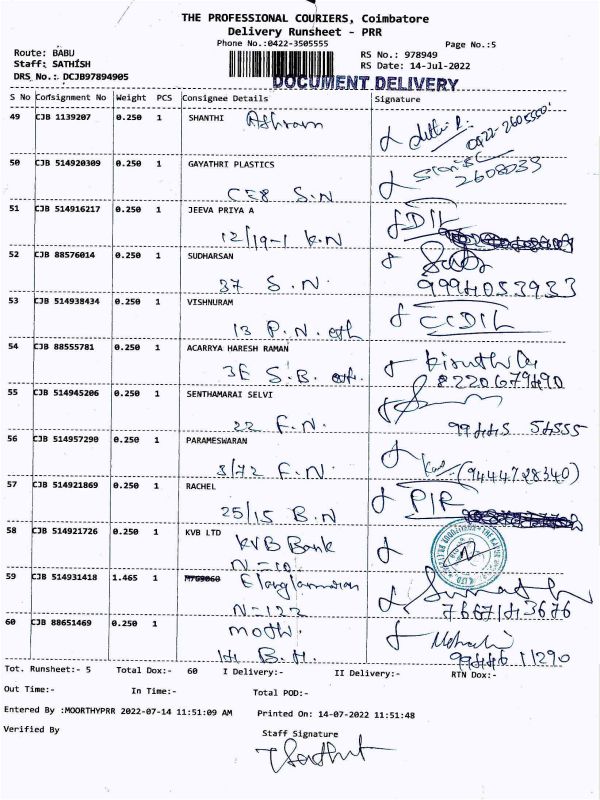 THE PROFESSIONAL COURIERS, Coimbatore
Delivery Runsheet - PRR
Phone No.:0422-3505555 Page No.:5
Route: BABU RS No.: 978949
Staff: SATHISH RS Date: 14-Jul-2022
DRS No.: DCJB97894905 DOCUMENT DELIVERY
S No Consignment No Weight PCS Consignee Details Signature
49 CJB 1139207 0.250 1 SHANTHI Ashram
0422-2605550
50 CJB 514920309 0.250 1 GAYATHRI PLASTICS
2608033
CE8 S.N
51 CJB 514916217 0.250 1 JEEVA PRIYA A DIL
12/19-1 K.N
52 CJB 88576014 0.250 1 SUDHARSAN
37 S.N. 9994053933
53 CJB 514938434 0.250 1 VISHNURAM CCDIL
13 P.N.
54 CJB 88555781 0.250 1 ACARRYA HARESH RAMAN
3E S.B. 8220679490
55 CJB 514945206 0.250 1 SENTHAMARAI SELVI
22 F.N. 99445 54555
56 CJB 514957290 0.250 1 PARAMESWARAN
3/72 F.N (9444728340)
57 CJB 514921869 0.250 1 RACHEL PIR
25/15 B.N
58 CJB 514921726 0.250 1 KVB LTD
KVB Bank
N=10
59 CJB 514931418 1.465 1 M7G9060
N=122 7667143676
60 CJB 88651469 0.250 1 moth.
14 B.H. 99446 11290
Tot. Runsheet:- 5 Total Dox:- 60 I Delivery:- II Delivery:- RTN Dox:-
Out Time:- In Time:- Total POD:-
Entered By :MOORTHYPRR 2022-07-14 11:51:09 AM Printed On: 14-07-2022 11:51:48
Verified By Staff Signature